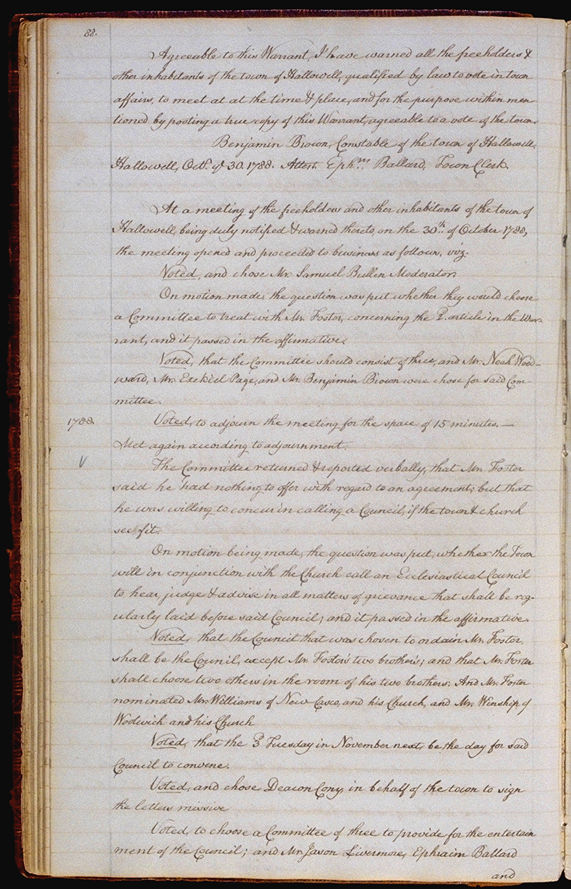 88.
Agreeable to this Warrant, I have warned all the freeholders &
other inhabitants of the town of Hallowell, qualified by law to vote in town
affairs, to meet at at the time & place, and for the purpose within men-
tioned by posting a true copy of this Warrant, agreeable to a vote of the town.
Benjamin Brown, Constable of the town of Hallowell
Hallowell, Octr. ye 30. 1788. Attest. Ephm. Ballard, Town Clerk.
At a meeting of the freeholders and other inhabitants of the town of
Hallowell, being duly notified & warned thereto, on the 30th. of October 1788,
the meeting opened and proceeded to business as follows, viz.
Voted, and chose Mr. Samuel Bullen Moderator.
On motion made, the question was put whether they would choose
a Committee to treat with Mr. Foster, concerning the article in the War-
rant, and it passed in the affirmative.
Voted, that the Committee should consist of three, and Mr. Noah Wood-
ward, Mr. Ezekiel Page, and Mr. Benjamin Brown were chose for said Com-
mittee.
1788. Voted, to adjourn the meeting for the space of 15 minutes. —
Met again according to adjournment.
The Committee returned & reported verbally, that Mr. Foster
said he had nothing to offer with regard to an agreement; but that
he was willing to concur in calling a Council, if the town & church
see fit.
On motion being made, the question was put, whether the Town
will in conjunction with the Church call an Ecclesiastical Council
to hear judge & advise in all matters of grievance that shall be reg-
ularly laid before said Council; and it passed in the affirmative.
Voted, that the Council that was chosen to ordain Mr. Foster,
shall be the Council, except Mr. Foster's two brothers; and that Mr. Foster
shall choose two others in the room of his two brothers. And Mr. Foster
nominated Mr. Williams of New Casco, and his Church, and Mr. Winship of
Wodwich and his Church
Voted, that the 3 Tuesday in November next, be the day for said
Council to convene.
Voted, and chose Deacon Cony, in behalf of the town to sign
the letters missive
Voted to choose a Committee of three to provide for the entertain
ment of the Council; and Mr. Jason Livermore, Ephraim Ballard
and